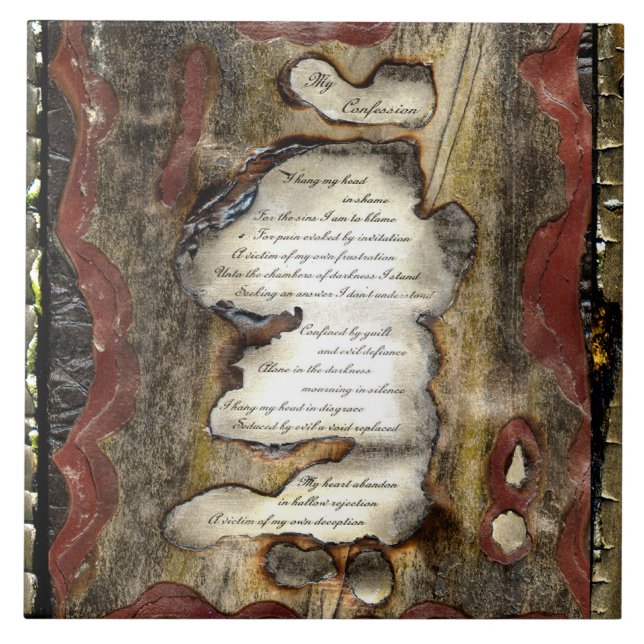 My
Confession
I hang my head
in shame
For the sins I am to blame
For pain evoked by invitation
A victim of my own frustration
Unto the chambers of darkness I stand
Seeking an answer I don't understand
Confined by guilt
and evil defiance
Alone in the darkness
mourning in silence
I hang my head in disgrace
Seduced by evil a void replaced
My heart abandon
in hallow rejection
A victim of my own deception